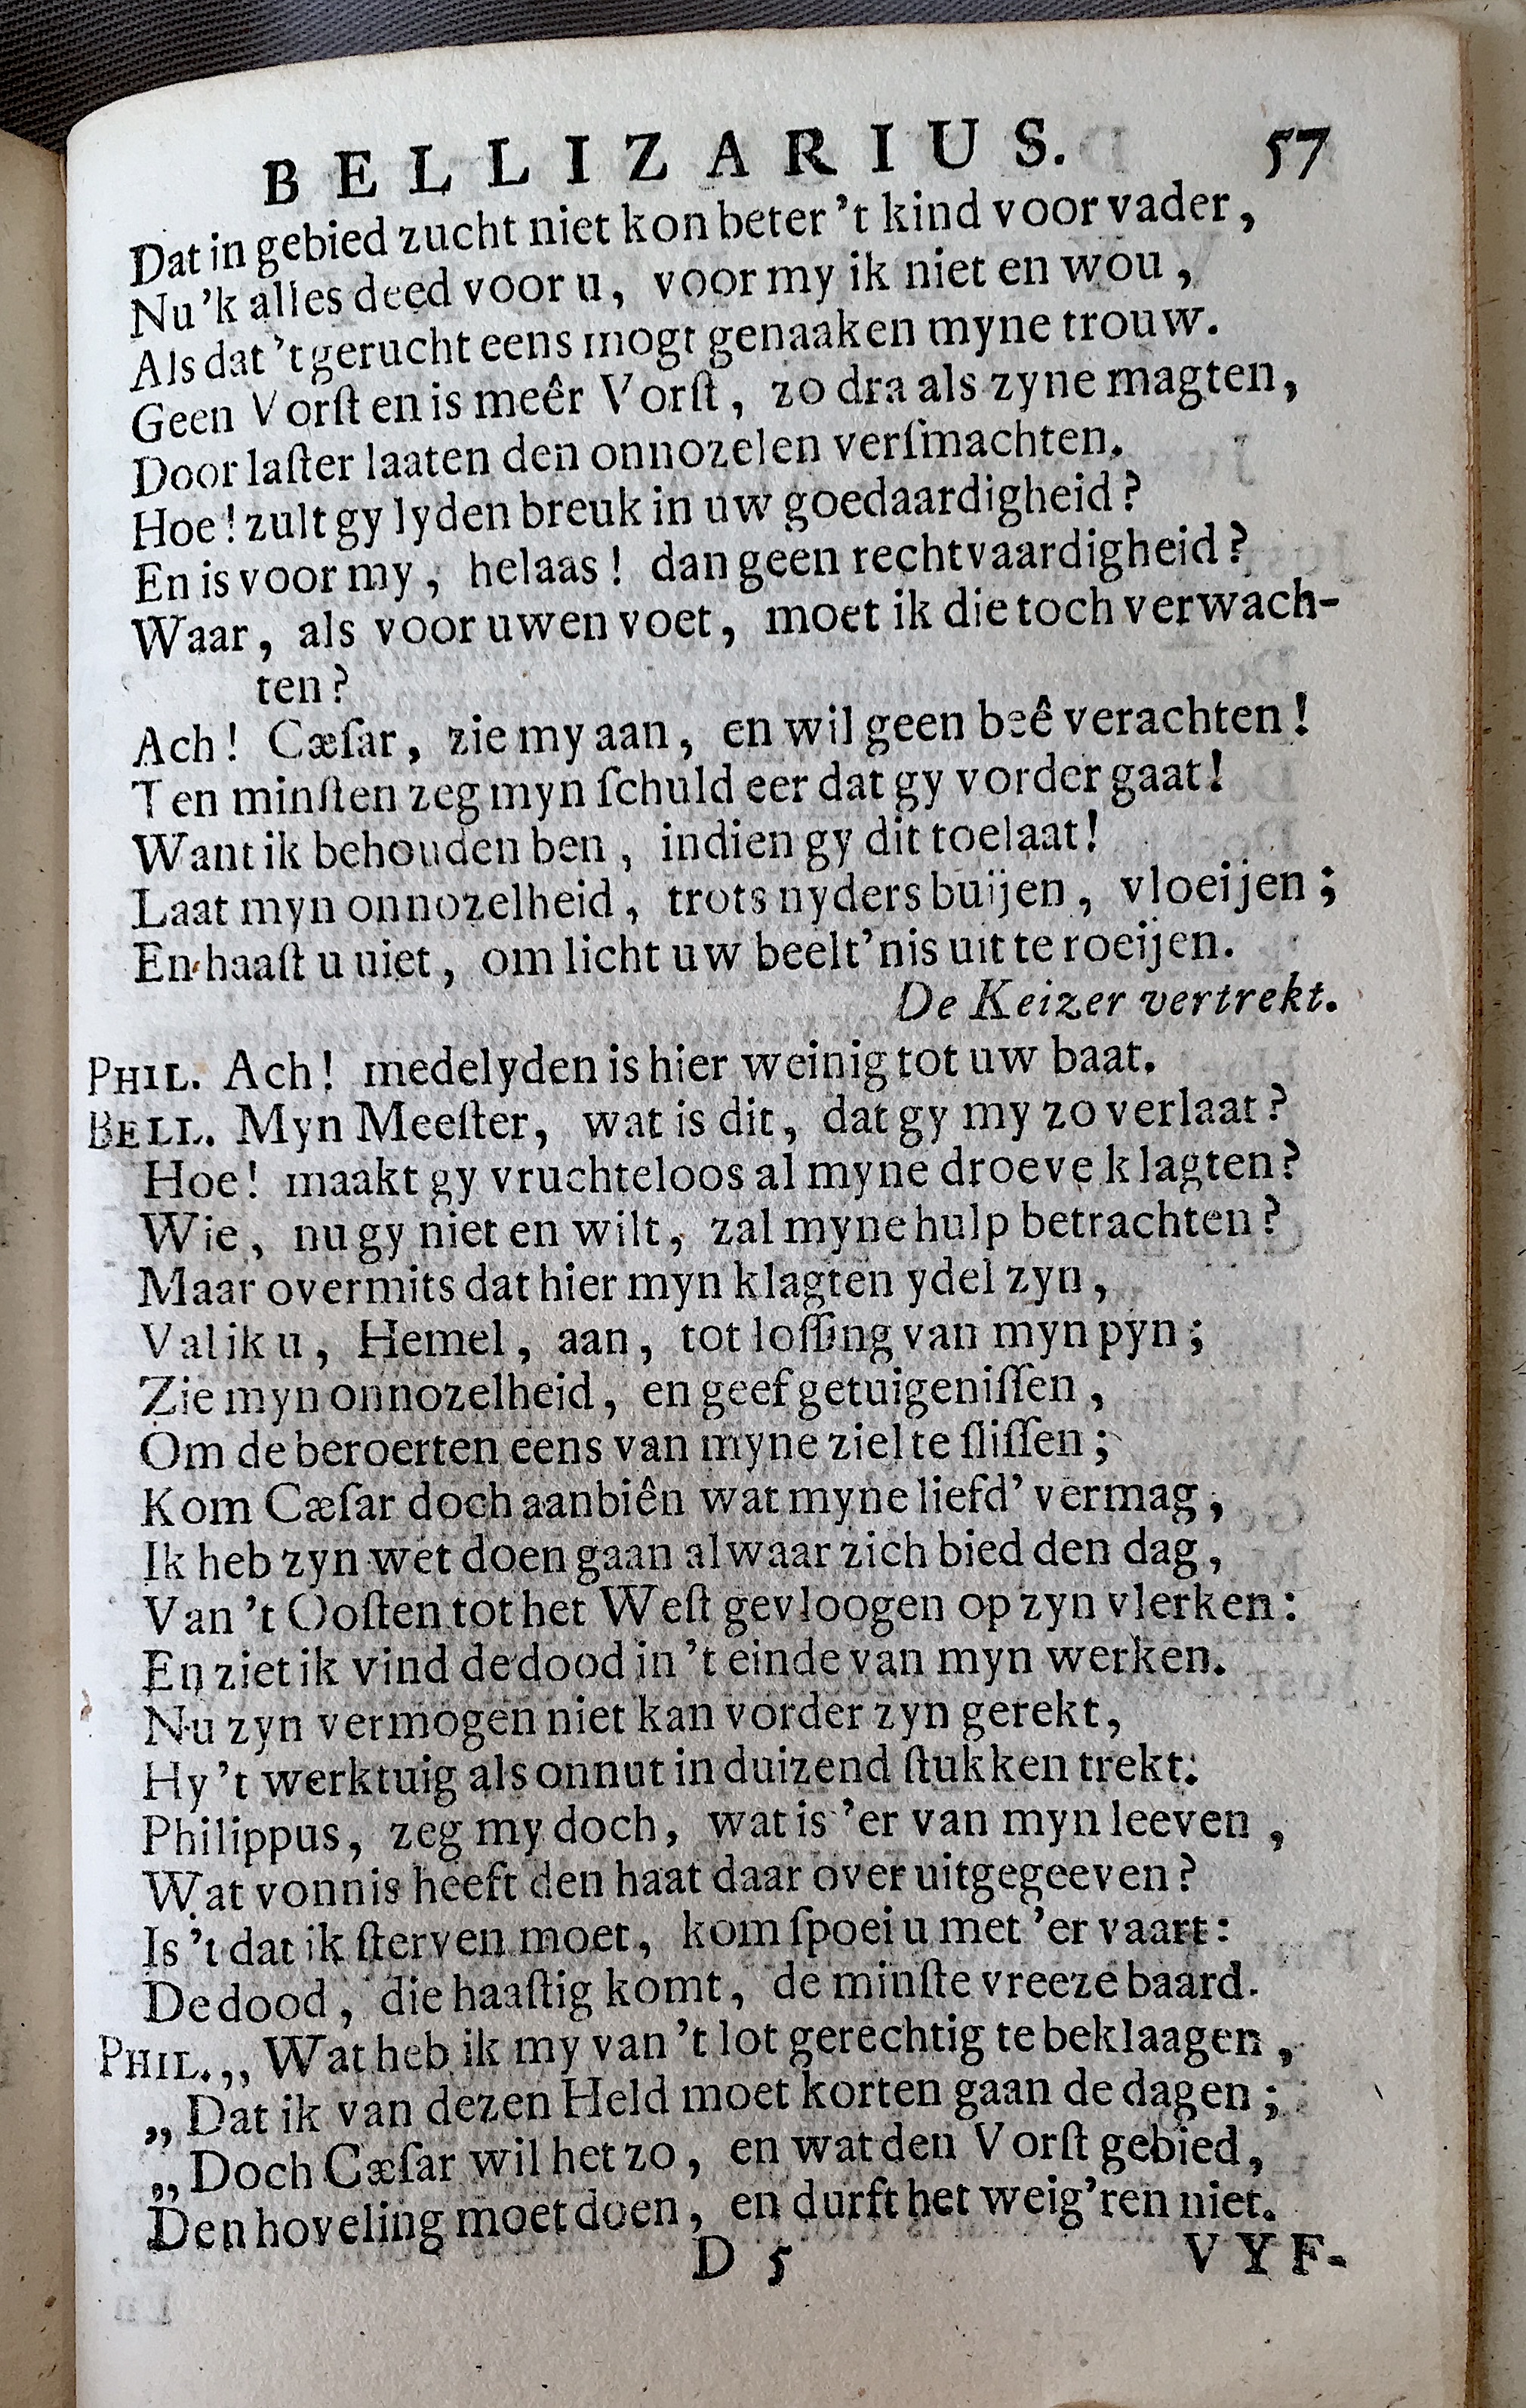 BELLIZARIUS. 57
Dat in gebied zucht niet kon beter 't kind voor vader,
Nu 'k alles deed voor u, voor my ik niet en wou,
Als dat 't gerucht eens mogt genaaken myne trouw.
Geen Vorſt en is meêr Vorſt, zo dra als zyne magten,
Door laſter laaten den onnozelen verſmachten.
Hoe! zult gy lyden breuk in uw goedaardigheid?
En is voor my, helaas! dan geen rechtvaardigheid?
Waar, als voor uwen voet, moet ik die toch verwach-
ten?
Ach! Cæſar, zie my aan, en wil geen beê verachten!
Ten minſten zeg myn ſchuld eer dat gy vorder gaat!
Want ik behouden ben, indien gy dit toelaat!
Laat myn onnozelheid, trots nyders buijen, vloeijen;
En haaſt u niet, om licht uw beelt'nis uit te roeijen.
De Keizer vertrekt.
PHIL. Ach! medelyden is hier weinig tot uw baat.
BELL. Myn Meeſter, wat is dit, dat gy my zo verlaat?
Hoe! maakt gy vruchteloos al myne droeve klagten?
Wie, nu gy niet en wilt, zal myne hulp betrachten?
Maar overmits dat hier myn klagten ydel zyn,
Val ik u, Hemel, aan, tot loſſing van myn pyn;
Zie myn onnozelheid, en geef getuigeniſſen,
Om de beroerten eens van myne ziel te ſliſſen;
Kom Cæſar doch aanbiên wat myne liefd' vermag,
Ik heb zyn wet doen gaan alwaar zich bied den dag,
Van 't Ooſten tot het Weſt gevloogen op zyn vlerken:
En ziet ik vind de dood in 't einde van myn werken.
Nu zyn vermogen niet kan vorder zyn gerekt,
Hy 't werktuig als onnut in duizend ſtukken trekt:
Philippus, zeg my doch, wat is 'er van myn leeven,
Wat vonnis heeft den haat daar over uitgegeeven?
Is 't dat ik ſterven moet, kom ſpoei u met 'er vaart:
De dood, die haaſtig komt, de minſte vreeze baard.
PHIL. ,, Wat heb ik my van 't lot gerechtig te beklaagen,
,, Dat ik van dezen Held moet korten gaan de dagen;
,, Doch Cæſar wil het zo, en wat den Vorſt gebied,
Den hoveling moet doen, en durft het weig'ren niet.
D 5 VYF-